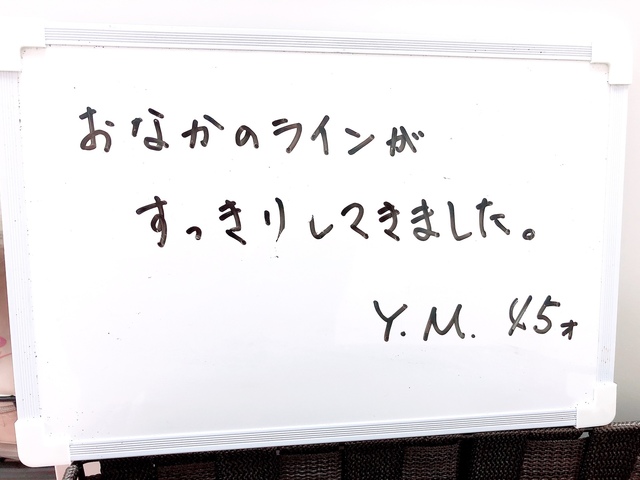 おなかのラインが
すっきりしてきました。
Y.M. 45才